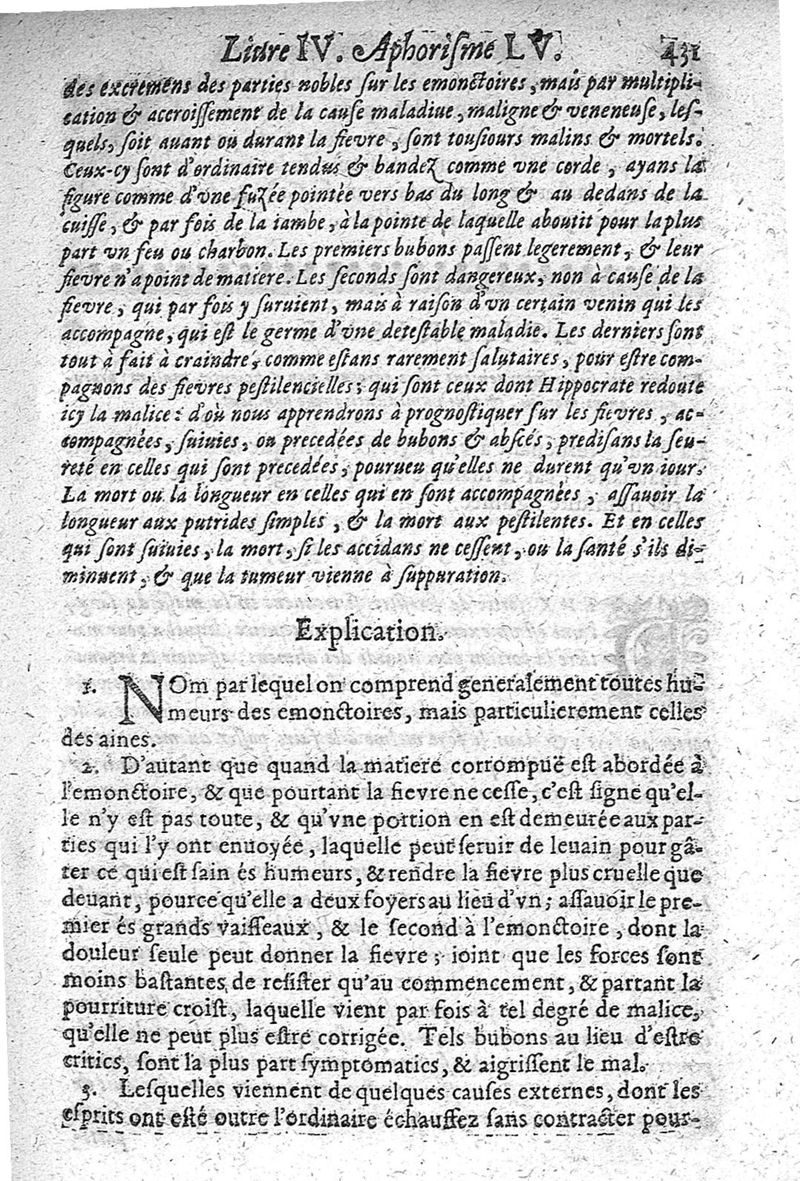 Liure IV. Aphorisme LV. 431
des excremens des parties nobles sur les emonctoires, mais par multipli-
cation & accroissement de la cause maladiue, maligne & veneneuse, les-
quels, soit auant ou durant la fievre, sont tousiours malins & mortels.
Ceux-cy sont d'ordinaire tendus & bandez comme vne corde, ayans la
figure comme d'vne fuzée pointée vers bas du long & au dedans de la
cuisse, & par fois de la iambe, à la pointe de laquelle aboutit pour la plus
part vn feu ou charbon. Les premiers bubons passent legerement, & leur
fievre n'a point de matiere. Les seconds sont dangereux, non à cause de la
fievre, qui par fois y suruient, mais à raison d'vn certain venin qui les
accompagne, qui est le germe d'vne detestable maladie. Les derniers sont
tout à fait à craindre, comme estans rarement salutaires, pour estre com-
pagnons des fievres pestilencielles; qui sont ceux dont Hippocrate redoute
icy la malice: d'où nous apprendrons à prognostiquer sur les fievres, ac-
compagnées, suiuies, ou precedées de bubons & abscés, predisans la seu-
reté en celles qui sont precedées, pourueu qu'elles ne durent qu'vn iour.
La mort ou la longueur en celles qui en sont accompagnées, assauoir la
longueur aux putrides simples, & la mort aux pestilentes. Et en celles
qui sont suiuies, la mort, si les accidans ne cessent, ou la santé s'ils di-
minuent, & que la tumeur vienne à suppuration.
Explication.
1. NOm par lequel on comprend generalement toutes hu-
meurs des emonctoires, mais particulierement celles
des aines.
2. D'autant que quand la matiere corrompuë est abordée à
l'emonctoire, & que pourtant la fievre ne cesse, c'est signe qu'el-
le n'y est pas toute, & qu'vne portion en est demeurée aux par-
ties qui l'y ont enuoyée, laquelle peut seruir de leuain pour gâ-
ter ce qui est sain és humeurs, & rendre la fievre plus cruelle que
deuant, pource qu'elle a deux foyers au lieu d'vn; assauoir le pre-
mier és grands vaisseaux, & le second à l'emonctoire, dont la
douleur seule peut donner la fievre; ioint que les forces sont
moins bastantes de resister qu'au commencement, & partant la
pourriture croist, laquelle vient par fois à tel degré de malice,
qu'elle ne peut plus estre corrigée. Tels bubons au lieu d'estre
critics, sont la plus part symptomatics, & aigrissent le mal.
3. Lesquelles viennent de quelques causes externes, dont les
esprits ont esté outre l'ordinaire échauffez sans contracter pour-